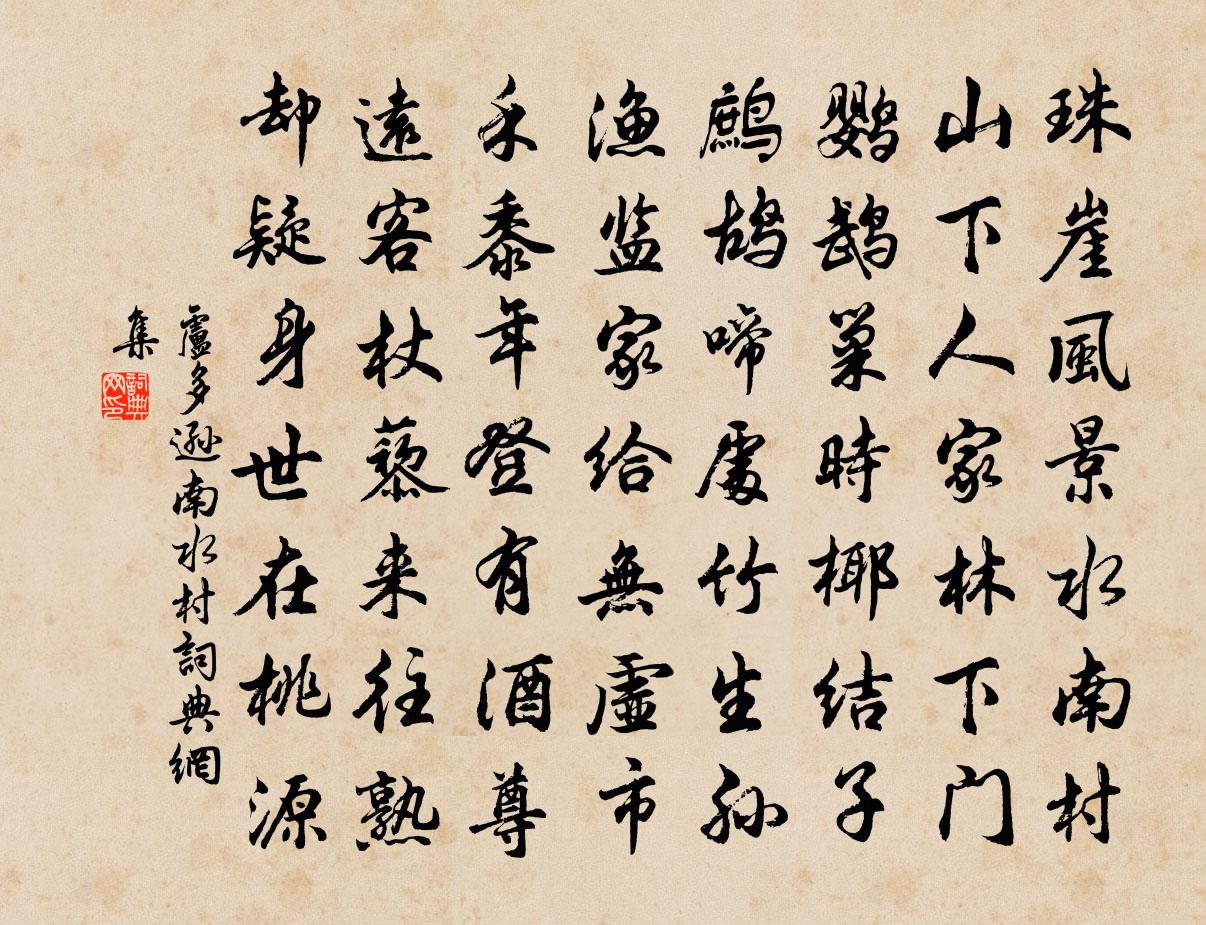 珠崖風景水南村
山下人家林下门
鹦鹉巢時椰结子
鹧鸪啼處竹生孙
渔监家给無虛市
禾黍年登有酒尊
遠客杖藜来往熟
却疑身世在桃源
盧多遜南水村詞典網
集
詞典
网印